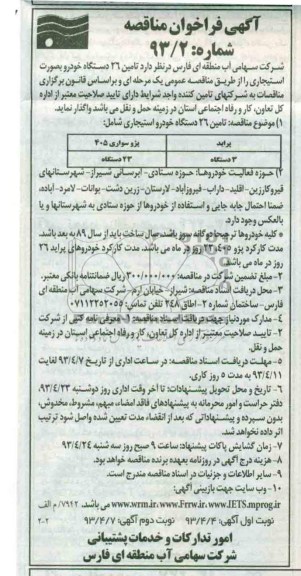 آگهی فراخوان مناقصه
شماره: ۹۳/۲
شرکت سهامی آب منطقه ای فارس درنظر دارد تامین ۲۶ دستگاه خودرو بصورت
استیجاری را از طریق مناقصه عمومی یک مرحله ای و براساس قانون برگزاری
مناقصات به شرکتهای تامین کننده واجد شرایط دارای تایید صلاحیت معتبر از اداره
کل تعاون، کار و رفاه اجتماعی استان در زمینه حمل و نقل می باشد واگذار نماید.
۱) موضوع مناقصه: تامین ۲۶ دستگاه خودرو استیجاری شامل:
پراید پژو سواری ۴۰۵
۳ دستگاه ۲۳ دستگاه
۲) حوزه فعالیت خودروها: حوزه ستادی - آبرسانی شیراز - شهرستانهای
فیروکارزین - اقلید - داراب - فیروزآباد - لارستان - زرین دشت - بوانات - لامرد - آباده،
ضمنا احتمال جابه جایی و استفاده از خودروها از حوزه ستادی به شهرستانها و یا
بالعکس وجود دارد.
* کلیه خودروها ترجیحا دوگانه سوز باشد، سال ساخت باید از سال ۸۹ به بعد باشد.
مدت کارکرد پژو ۴۰۵، ۲۳ روز در ماه می باشد. مدت کارکرد خودروهای پراید ۲۶
روز در ماه می باشد.
۲- مبلغ تضمین شرکت در مناقصه: ۳۰۰/۰۰۰/۰۰۰ ریال ضمانتنامه بانکی معتبر.
۳- محل دریافت اسناد مناقصه: شیراز - خیابان ارم - شرکت سهامی آب منطقه ای
فارس - ساختمان شماره ۲ - اطاق ۲۴۸ تلفن تماس: ۰۷۱۱۲۲۵۲۰۵۵
۴- مدارک موردنیاز جهت دریافت اسناد مناقصه: ۱- معرفی نامه کتبی از شرکت
۲- تاییید صلاحیت معتبر از اداره کل تعاون، کار و رفاه اجتماعی استان در زمینه
حمل و نقل.
۵- مهلت دریافت اسناد مناقصه: در ساعت اداری از تاریخ ۹۳/۴/۷ لغایت
۹۳/۴/۱۱ به مدت ۵ روز کاری.
۶- تاریخ و محل تحویل پیشنهادات: تا آخر وقت اداری روز دوشنبه ۹۳/۴/۲۳،
دفتر حراست و امور محرمانه به پیشنهادهای فاقد امضاء، مبهم، مشروط، مخدوش،
بدون سپرده و پیشنهاداتی که بعد از انقضاء مدت تعیین شده واصل شود ترتیب
اثر داده نخواهد شد.
۷- زمان گشایش پاکات پیشنهاد: ساعت ۹ صبح روز سه شنبه ۹۳/۴/۲۴
۸- هزینه درج آگهی در روزنامه بعهده برنده مناقصه خواهد بود.
۹- سایر اطلاعات و جزئیات در اسناد مناقصه مندرج است.
۱۰- وب سایت جهت بازبینی آگهی:
www.wrm.ir، www.Frrw.ir، www.IETS.mprog.ir می باشد. ۷۹۲۲/م الف
نوبت اول آگهی: ۹۳/۴/۴ نوبت دوم آگهی: ۹۳/۴/۷ ۲-۲
امور تدارکات و خدمات پشتیبانی
شرکت سهامی آب منطقه ای فارس